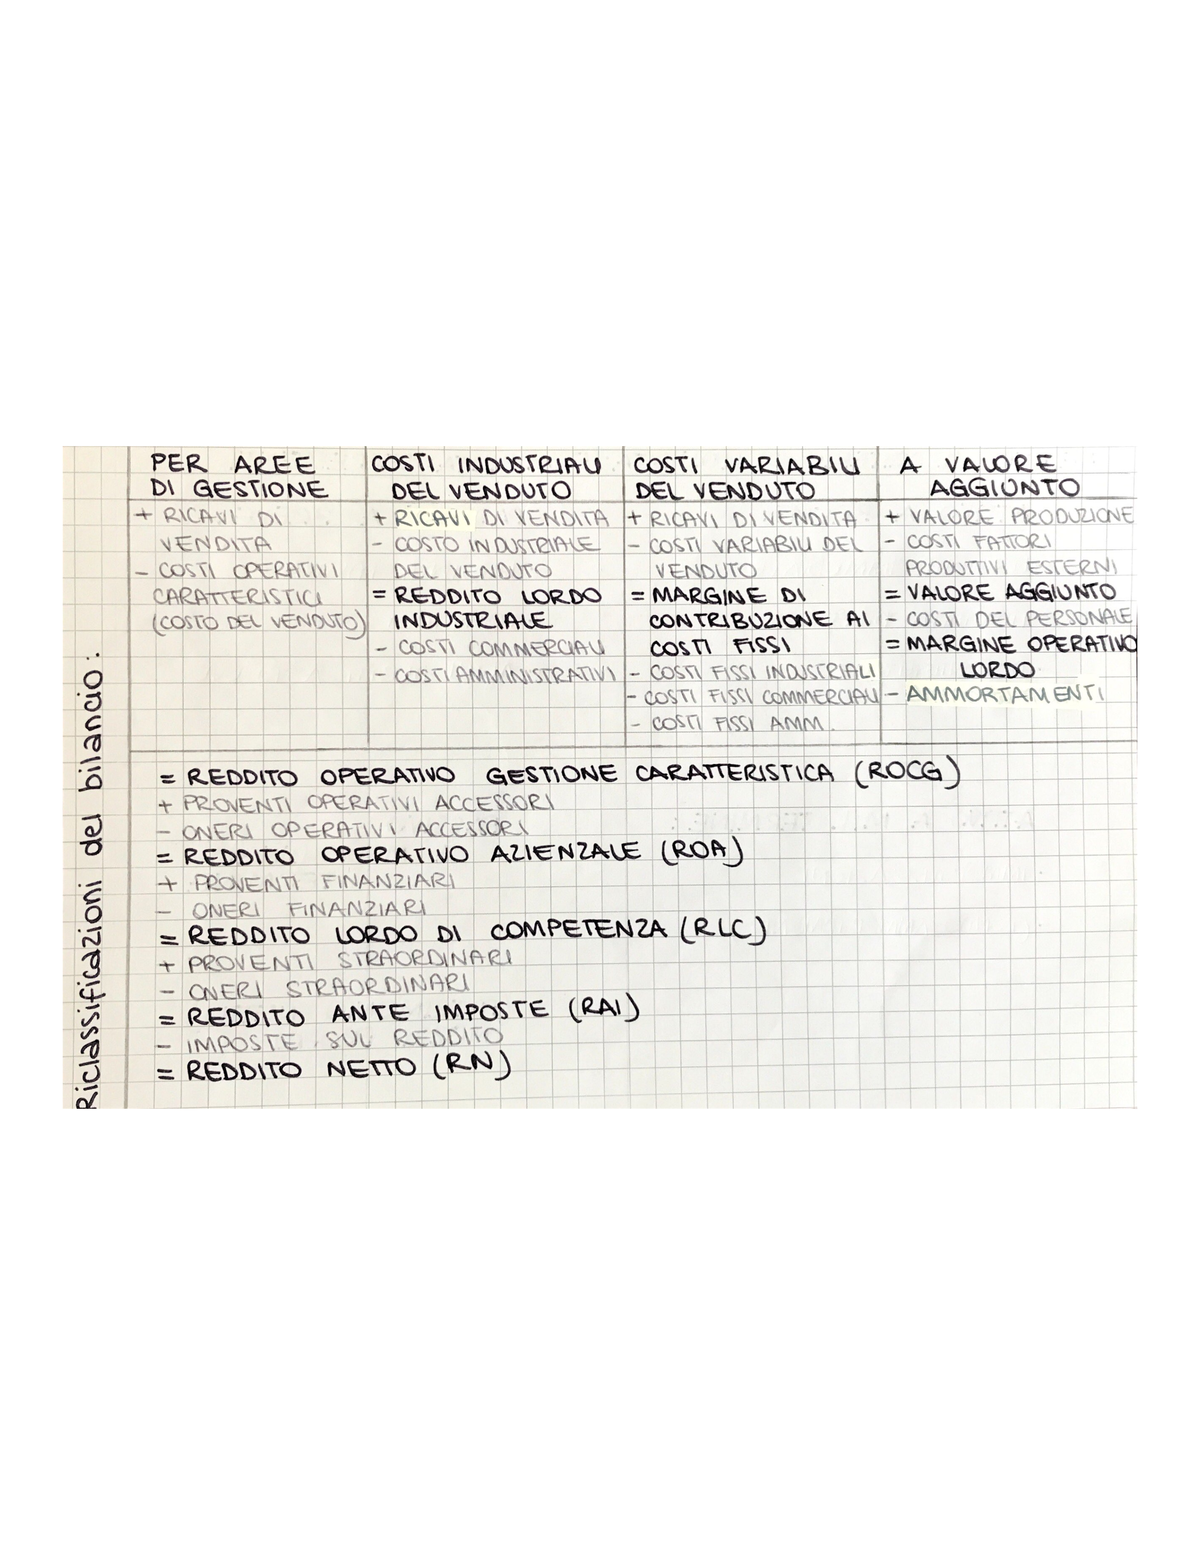 Riclassificazioni del bilancio:
PER AREE
DI GESTIONE
+ RICAVI DI
VENDITA
- COSTI OPERATIVI
CARATTERISTICI
(COSTO DEL VENDUTO)
COSTI INDUSTRIALI
DEL VENDUTO
+ RICAVI DI VENDITA
- COSTO INDUSTRIALE
DEL VENDUTO
= REDDITO LORDO
INDUSTRIALE
- COSTI COMMERCIALI
- COSTI AMMINISTRATIVI
COSTI VARIABILI
DEL VENDUTO
+ RICAVI DI VENDITA
- COSTI VARIABILI DEL
VENDUTO
= MARGINE DI
CONTRIBUZIONE AI
COSTI FISSI
- COSTI FISSI INDUSTRIALI
- COSTI FISSI COMMERCIALI
- COSTI FISSI AMM.
A VALORE
AGGIUNTO
+ VALORE PRODUZIONE
- COSTI FATTORI
PRODUTTIVI ESTERNI
= VALORE AGGIUNTO
- COSTI DEL PERSONALE
= MARGINE OPERATIVO
LORDO
- AMMORTAMENTI
= REDDITO OPERATIVO GESTIONE CARATTERISTICA (ROCG)
+ PROVENTI OPERATIVI ACCESSORI
- ONERI OPERATIVI ACCESSORI
= REDDITO OPERATIVO AZIENZALE (ROA)
+ PROVENTI FINANZIARI
- ONERI FINANZIARI
= REDDITO LORDO DI COMPETENZA (RLC)
+ PROVENTI STRAORDINARI
- ONERI STRAORDINARI
= REDDITO ANTE IMPOSTE (RAI)
- IMPOSTE SUL REDDITO
= REDDITO NETTO (RN)